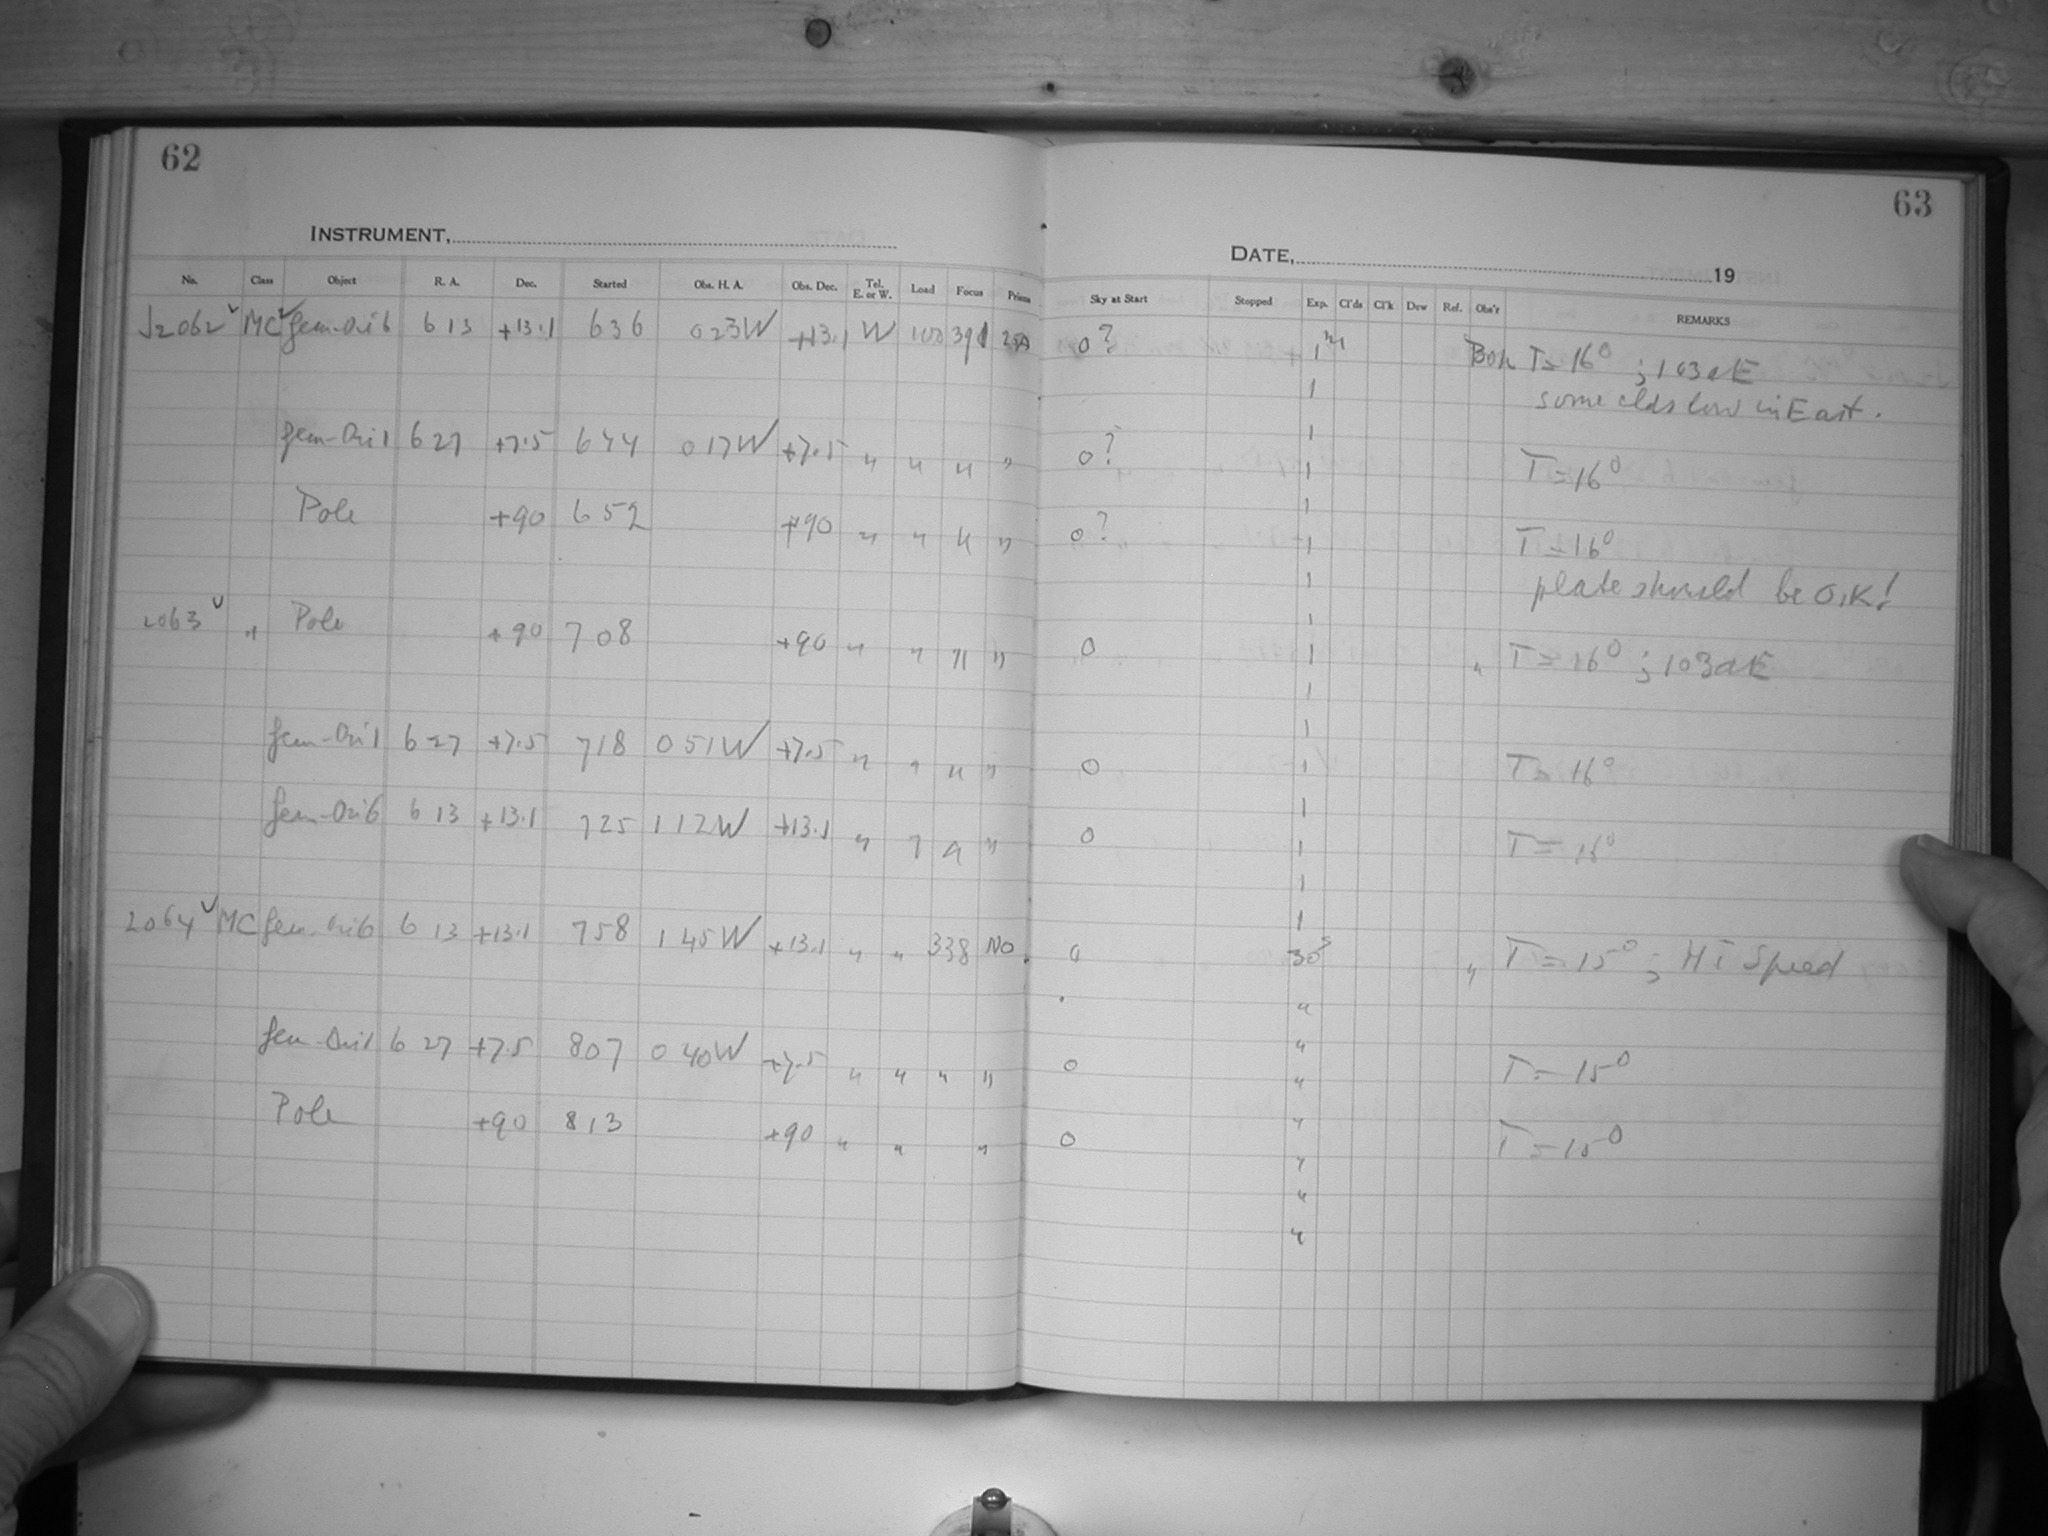 62
63
INSTRUMENT,
DATE, 19
No. Class Object R. A. Dec. Started Obs. H. A. Obs. Dec. Tel. E. or W. Load Focus Prism Sky at Start Stopped Exp. Cl'ds Cl'k Dew Ref. Obs'r REMARKS
J2062 MC Gem-Ori 6 6 13 +13.1 6 36 0 23W +13.1 W 100 391 0? 1 m Bok T=16° ; 103aE
1 some clds low in East.
1
Gem-Ori 1 6 27 +7.5 6 44 0 17W +7.5 " " " " 0? 1 T=16°
1
Pole +90 6 52 +90 " " " " 0? 1 T=16°
1 plate should be O.K!
1
2063 " Pole +90 7 08 +90 " " " " 0 1 " T=16° ; 103aE
1
1
Gem-Ori 1 6 27 +7.5 718 0 51W +7.5 " " " " 0 1 T=16°
1
Gem-Ori 6 6 13 +13.1 725 1 12W +13.1 " " " " 0 1 T=16°
1
1
2064 MC Gem-Ori 6 6 13 +13.1 758 1 45W +13.1 " " 338 NO 0 30s " T=15° ; Hi Speed
"
"
Gem-Ori 1 6 27 +7.5 807 0 40W +7.5 " " " " 0 " T=15°
"
Pole +90 813 +90 " " " 0 " T=15°
"
"